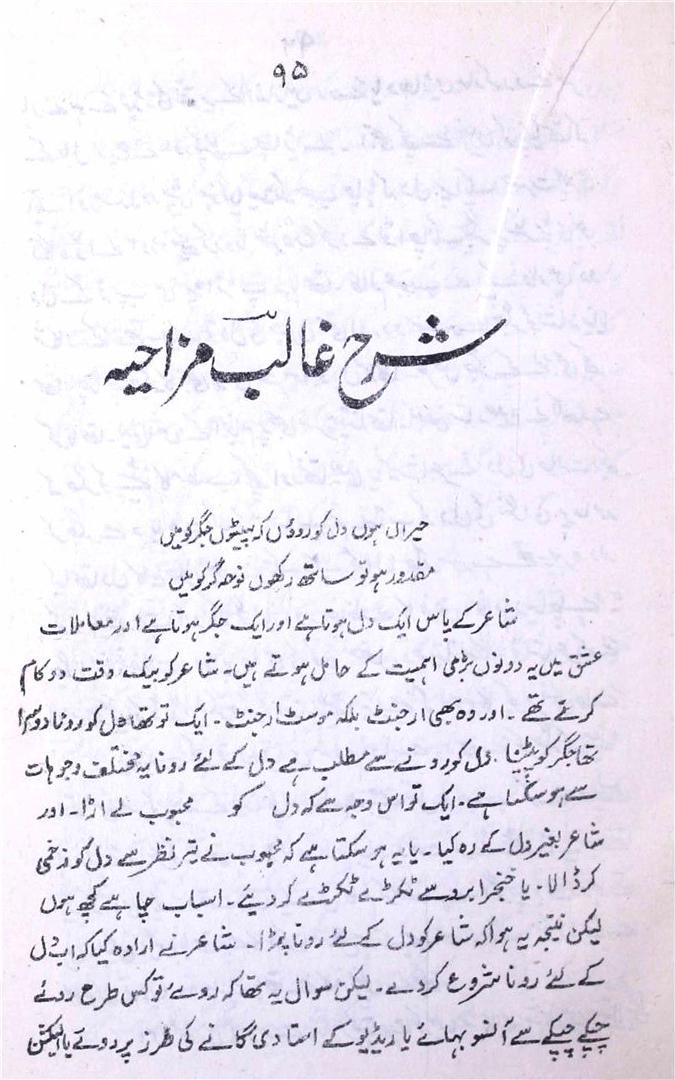 ۹۵
شرح غالب مزاحیہ
حیراں ہوں دل کو روؤں کہ پیٹوں جگر کو میں
مقدور ہو تو ساتھ رکھوں نوحہ گر کو میں
شاعر کے پاس ایک دل ہوتا ہے اور ایک جگر ہوتا ہے اور معاملات
عشق میں یہ دونوں بڑی اہمیت کے حامل ہوتے ہیں۔ شاعر کو بیک وقت دو کام
کرنے تھے۔ اور وہ بھی ارجنٹ بلکہ موسٹ ارجنٹ۔ ایک تو تھا دل کو رونا دوسرا
تھا جگر کو پیٹنا۔ دل کو رونے سے مطلب ہے دل کے لئے رونا یہ مختلف وجوہات
سے ہو سکتا ہے۔ ایک تو اس وجہ سے کہ دل کو محبوب لے اڑا۔ اور
شاعر بغیر دل کے رہ گیا۔ یا یہ ہو سکتا ہے کہ محبوب نے تیر نظر سے دل کو زخمی
کر ڈالا۔ یا خنجر ابرو سے ٹکڑے ٹکڑے کر دیئے۔ اسباب چاہے کچھ ہوں
لیکن نتیجہ یہ ہوا کہ شاعر کو دل کے لئے رونا پڑا۔ شاعر نے ارادہ کیا کہ اب دل
کے لئے رونا شروع کر دے۔ لیکن سوال یہ تھا کہ روئے تو کس طرح روئے
چپکے چپکے سے آنسو بہائے یا ریڈیو کے استادی گانے کی طرز پر روئے یا